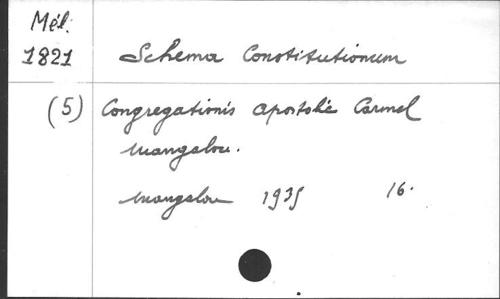 Mél.
1821
Schema Constitutionum
(5) Congregationis Apostolic Carmel
Mangalore.
Mangalore 1935 16.